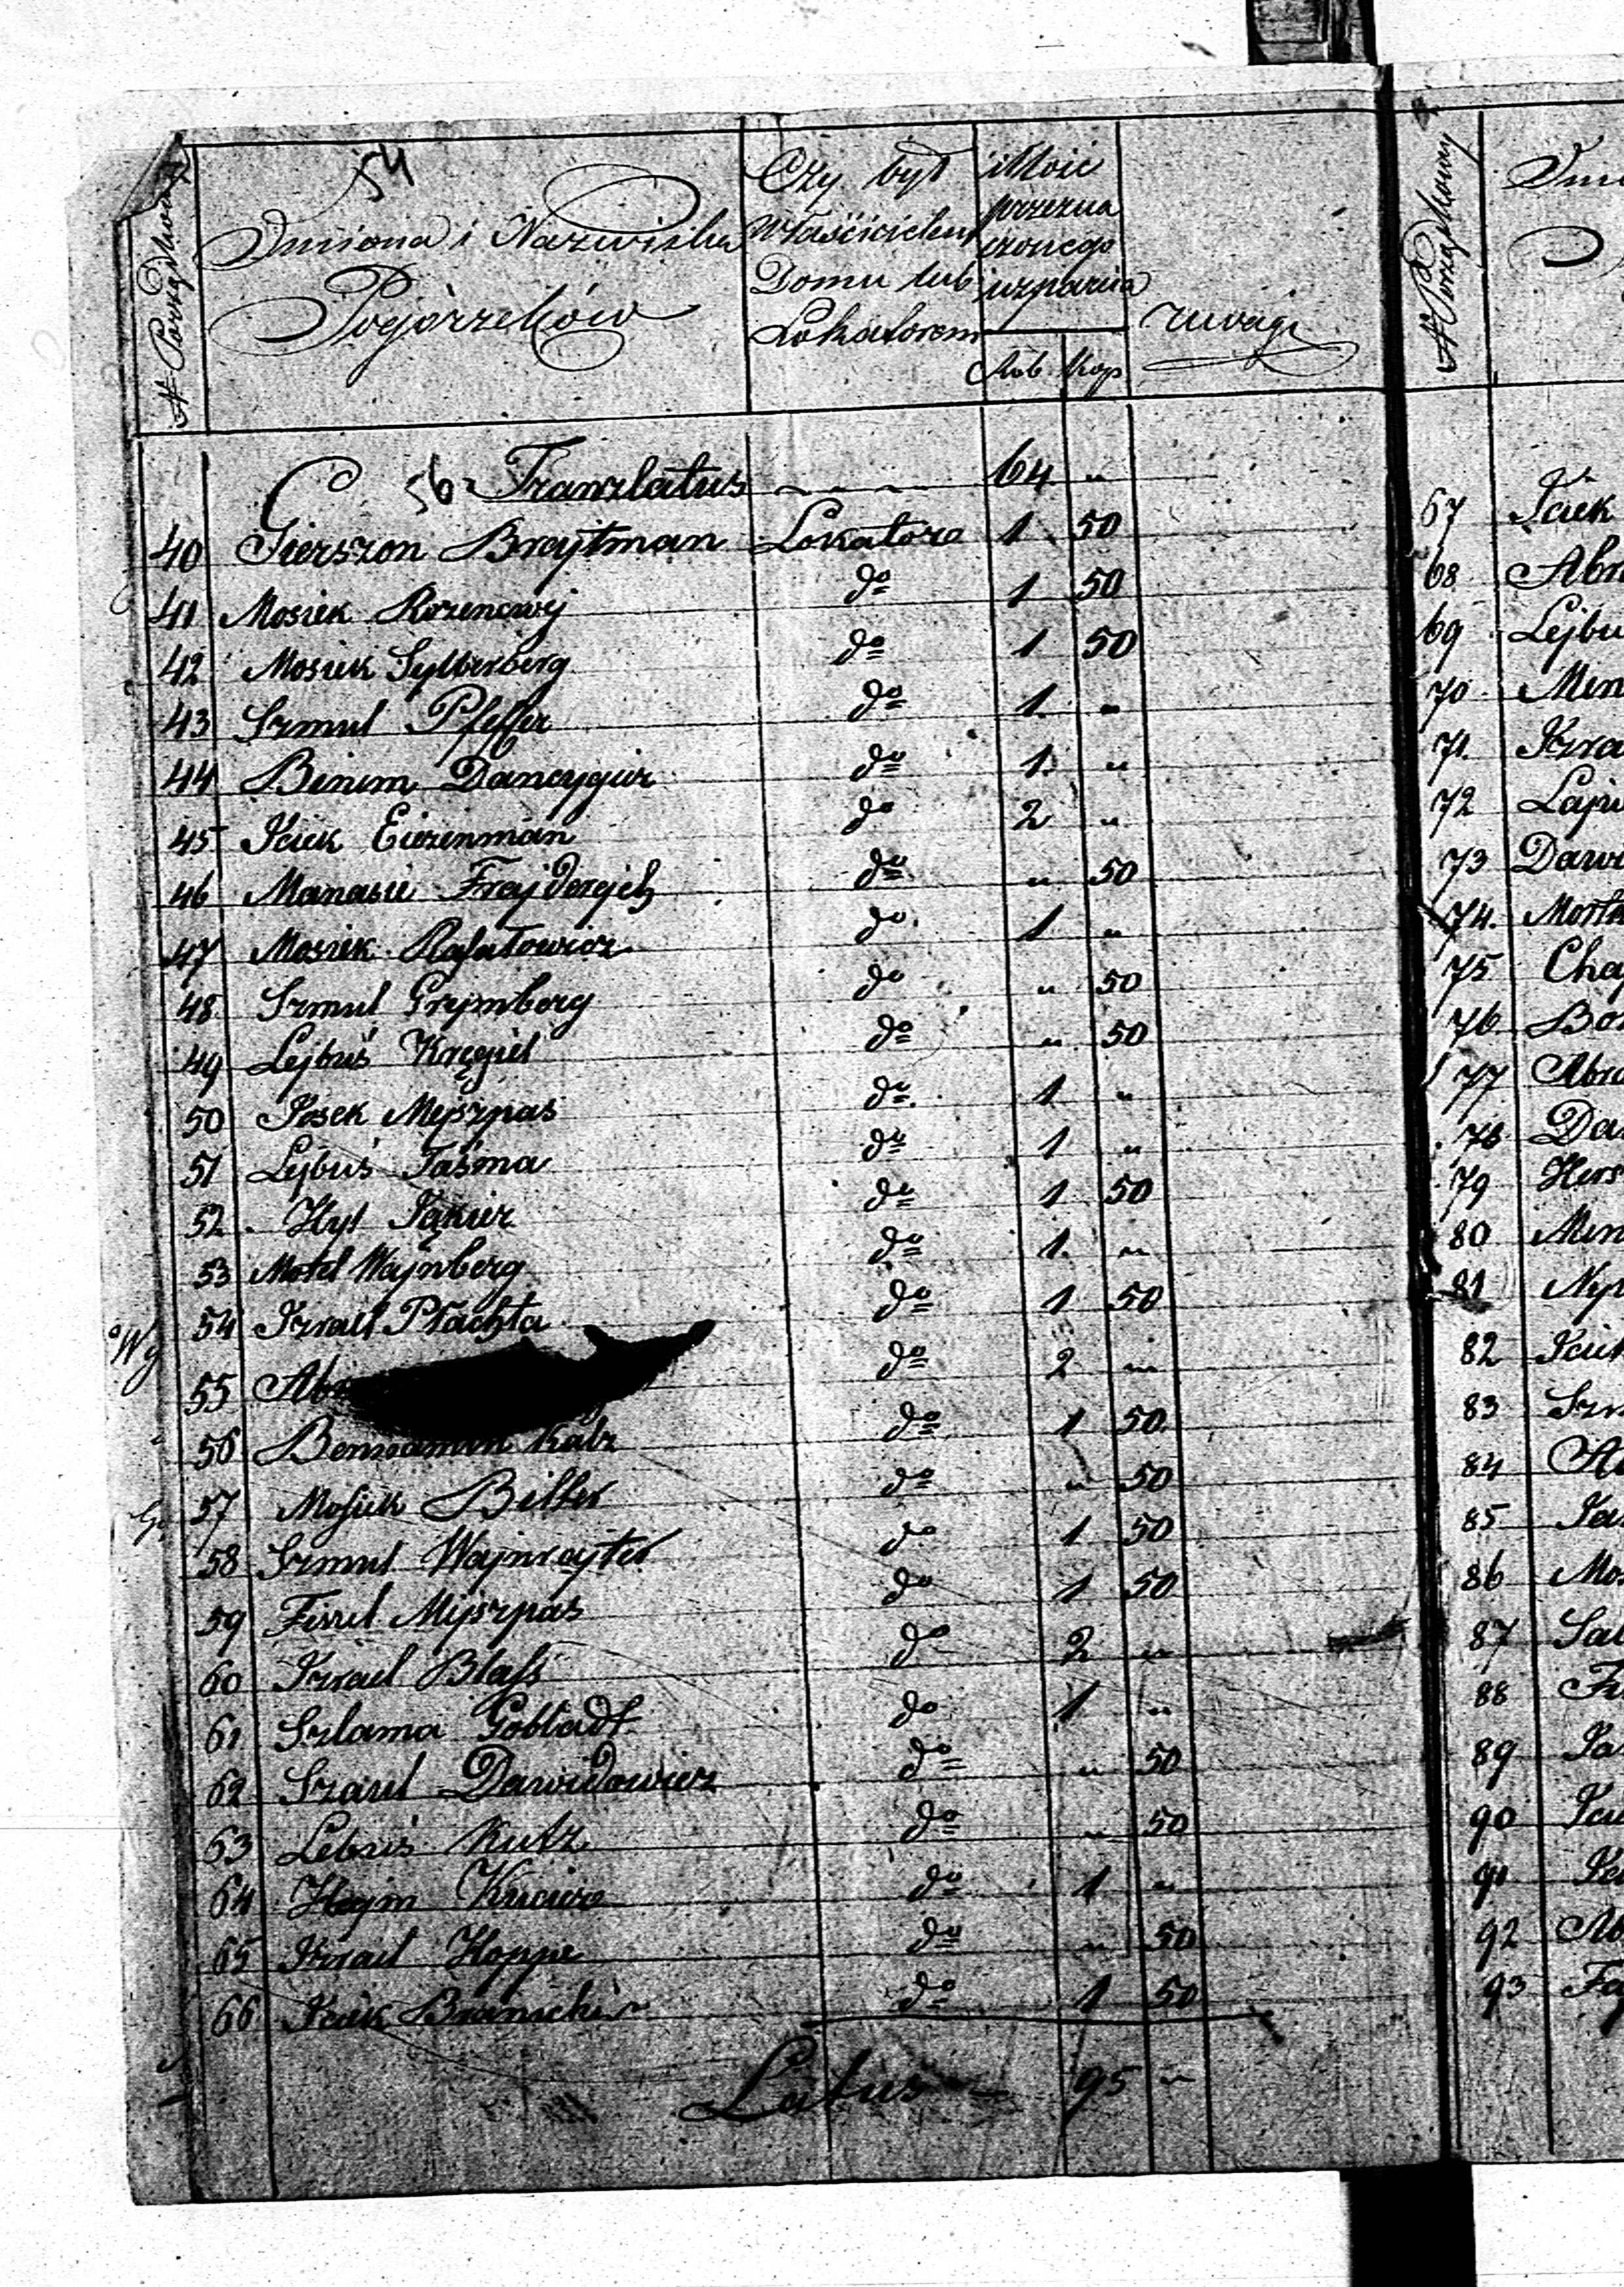 54
N Porządkowy
Imiona i Nazwiska
Pogorzelców
Czy był
Właścicielem
Domu lub
Lokatorem
ilość
przezna
czonego
wsparcia
Rub Kop
uwagi
Translatus 64 "
40 Gierszon Brajtman Lokator 1 50
41 Mosiek Rozencwej do 1 50
42 Mosiek Sylberberg do 1 50
43 Szmul Pfeffer do 1 "
44 Binem Dancygier do 1 "
45 Iciek Eizenman do 2 "
46 Manasie Frajderejch do " 50
47 Mosiek Rafałowicz do 1 "
48 Szmul Grynberg do " 50
49 Lejbuś Kręgiel do " 50
50 Josek Mejszpas do 1 "
51 Lejbuś Taśma do 1 "
52 Hyl Iąkier do 1 50
53 Motel Wajnberg do 1 "
54 Izrael Płachta do 1 50
55 do 2 "
56 Beniamin Katz do 1 50
57 Mosiek Bitter do " 50
58 Szmul Wajnrajter do 1 50
59 Fiszel Mejszpas do 1 50
60 Izrael Blass do 2 "
61 Szlama Gobladt do 1 "
62 Szaul Dawidowicz do " 50
63 Lebuś Kutz do " 50
64 Hejm do 1 "
65 Izrael Hoppe do " 50
66 Iciek Branicki do 1 50
Latus 95 "
N Porządkowy
67 Iciek
68 Abr
69 Lejbu
70 Men
71 Izra
72 Laj
73 Dawi
74 Mort
75 Cha
76 Bo
77 Abra
78 Da
79 Hers
80 Men
81
82 Iciek
83 Szm
84
85
86 Mos
87 Sal
88
89
90 Ici
91
92
93